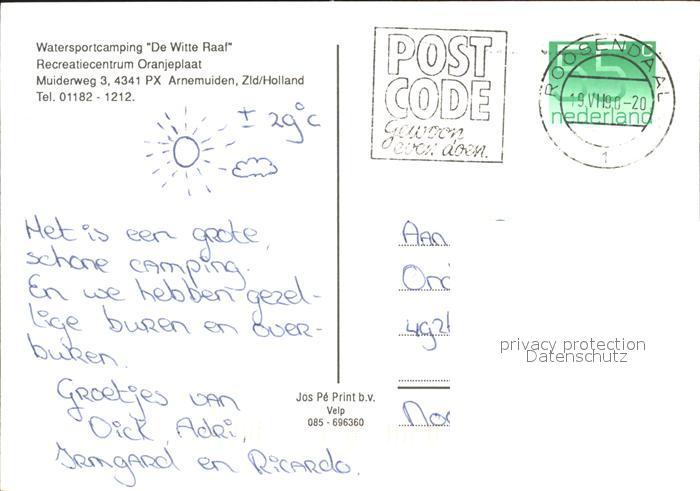 Watersportcamping "De Witte Raaf"
Recreatiecentrum Oranjeplaat
Muiderweg 3, 4341 PX Arnemuiden, Zld/Holland
Tel. 01182 - 1212.
± 29°C
Het is een grote,
schone camping.
En we hebben gezel-
lige buren en over-
buren.
Groetjes van
Dick, Adri,
Irmgard en Ricardo.
Jos Pé Print b.v.
Velp
085 - 696360
POST
CODE
gewoon
even doen.
ROOSENDAAL
19.VII.9 -20
1
nederland
Aan
privacy protection
Datenschutz